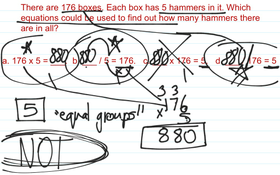 There are 176 boxes. Each box has 5 hammers in it. Which
equations could be used to find out how many hammers there
are in all?
a. 176 x 5 = 880 b. 880 / 5 = 176. c. 880 x 176 = 5. d. 880 / 176 = 5
3 3
5 "equal groups" 176
x 5
NOT 880